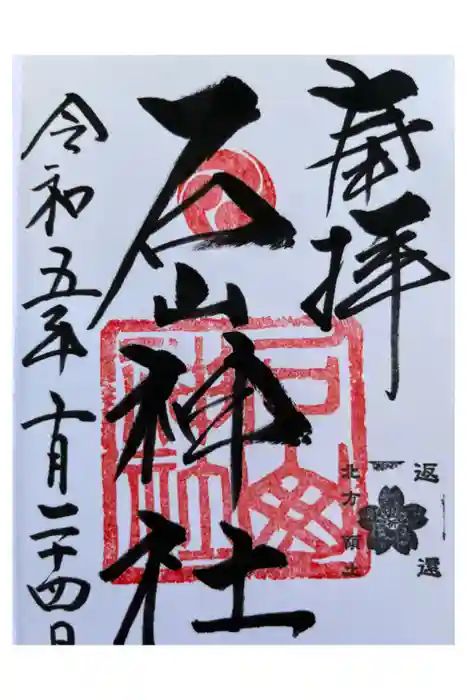 奉拝
石山神社
令和五年十月二十四日
北方領土
返還